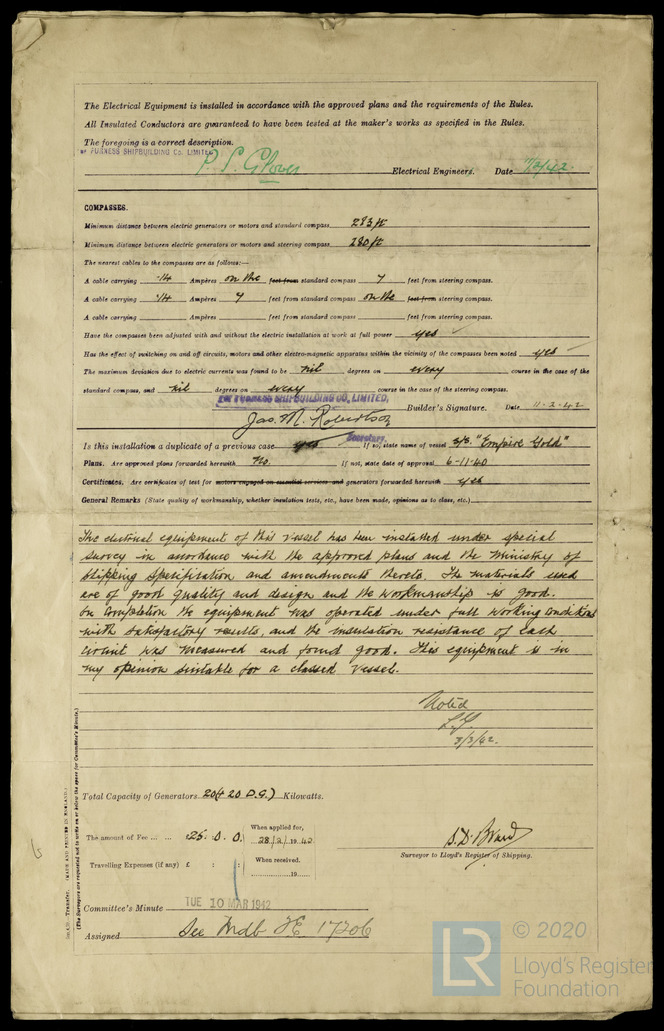 The Electrical Equipment is installed in accordance with the approved plans and the requirements of the Rules.
All Insulated Conductors are guaranteed to have been tested at the maker's works as specified in the Rules.
The foregoing is a correct description.
FURNESS SHIPBUILDING Co. LIMITED
P. S. Glover Electrical Engineers. Date
COMPASSES.
Minimum distance between electric generators or motors and standard compass 283 ft
Minimum distance between electric generators or motors and steering compass 280 ft
The nearest cables to the compasses are as follows:—
A cable carrying .14 Ampères on the feet from standard compass 7 feet from steering compass.
A cable carrying .14 Ampères 7 feet from standard compass on the feet from steering compass.
A cable carrying Ampères feet from standard compass feet from steering compass.
Have the compasses been adjusted with and without the electric installation at work at full power yes
Has the effect of switching on and off circuits, motors and other electro-magnetic apparatus within the vicinity of the compasses been noted yes
The maximum deviation due to electric currents was found to be nil degrees on every course in the case of the
standard compass, and nil degrees on every course in the case of the steering compass.
FURNESS SHIPBUILDING CO., LIMITED,
Jas. M. Robertson Builder's Signature. Date 11-2-42
Secretary.
Is this installation a duplicate of a previous case yes If so, state name of vessel S/S. "Empire Gold"
Plans. Are approved plans forwarded herewith No. If not, state date of approval 6-11-40
Certificates. Are certificates of test for motors engaged on essential services and generators forwarded herewith yes
General Remarks (State quality of workmanship, whether insulation tests, etc., have been made, opinions as to class, etc.)
The electrical equipment of this vessel has been installed under special
survey in accordance with the approved plans and the Ministry of
Shipping Specification and amendments thereto. The materials used
are of good quality and design and the workmanship is good.
On completion the equipment was operated under full working conditions
with satisfactory results, and the insulation resistance of each
circuit was measured and found good. This equipment is in
my opinion suitable for a classed vessel.
Noted
3/3/42.
Total Capacity of Generators 20(+20 D.G.) Kilowatts.
The amount of Fee ... ... £25 : 0 : 0. When applied for, 28/2/1942
Travelling Expenses (if any) £ : : When received, 19
Surveyor to Lloyd's Register of Shipping.
Committee's Minute TUE 10 MAR 1942
Assigned See Mdb FE 17206
Transfer. (MADE AND PRINTED IN ENGLAND.)
(The Surveyors are requested not to write on or below the space for Committee's Minute.)
LR
© 2020
Lloyd's Register
Foundation